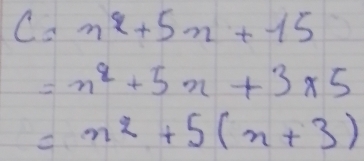 C = n² + 5n + 15
= n² + 5n + 3 × 5
= n² + 5(n + 3)